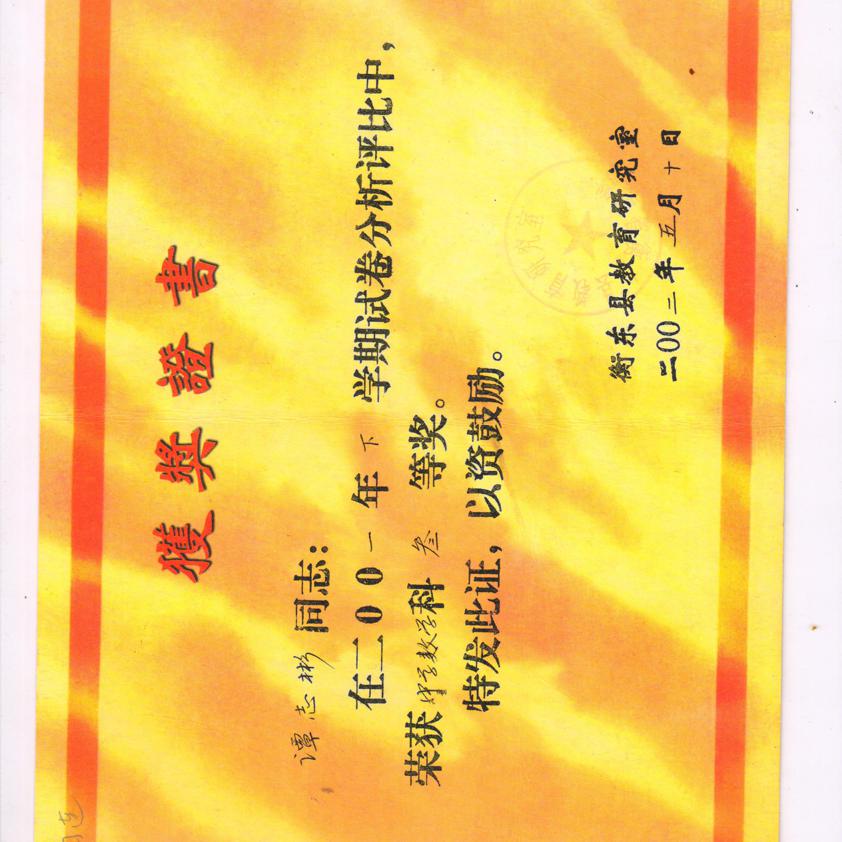 獲獎證書
谭志彬 同志：
在二00一年 下 学期试卷分析评比中，
荣获中学数学科 叁 等奖。
特发此证，以资鼓励。
衡东县教育研究室
二00二年五月十日